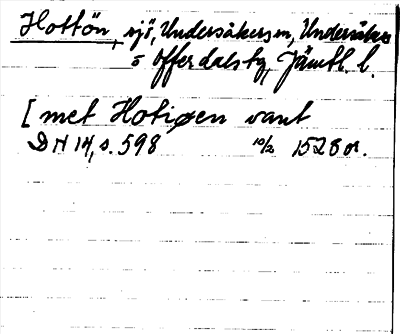 Hottön, sjö, Undersåkers sn, Undersåkers
o Offerdals tg, Jämtl. l.
[met Hotiøen vant
DN 14, s. 598 10/2 1528 or.